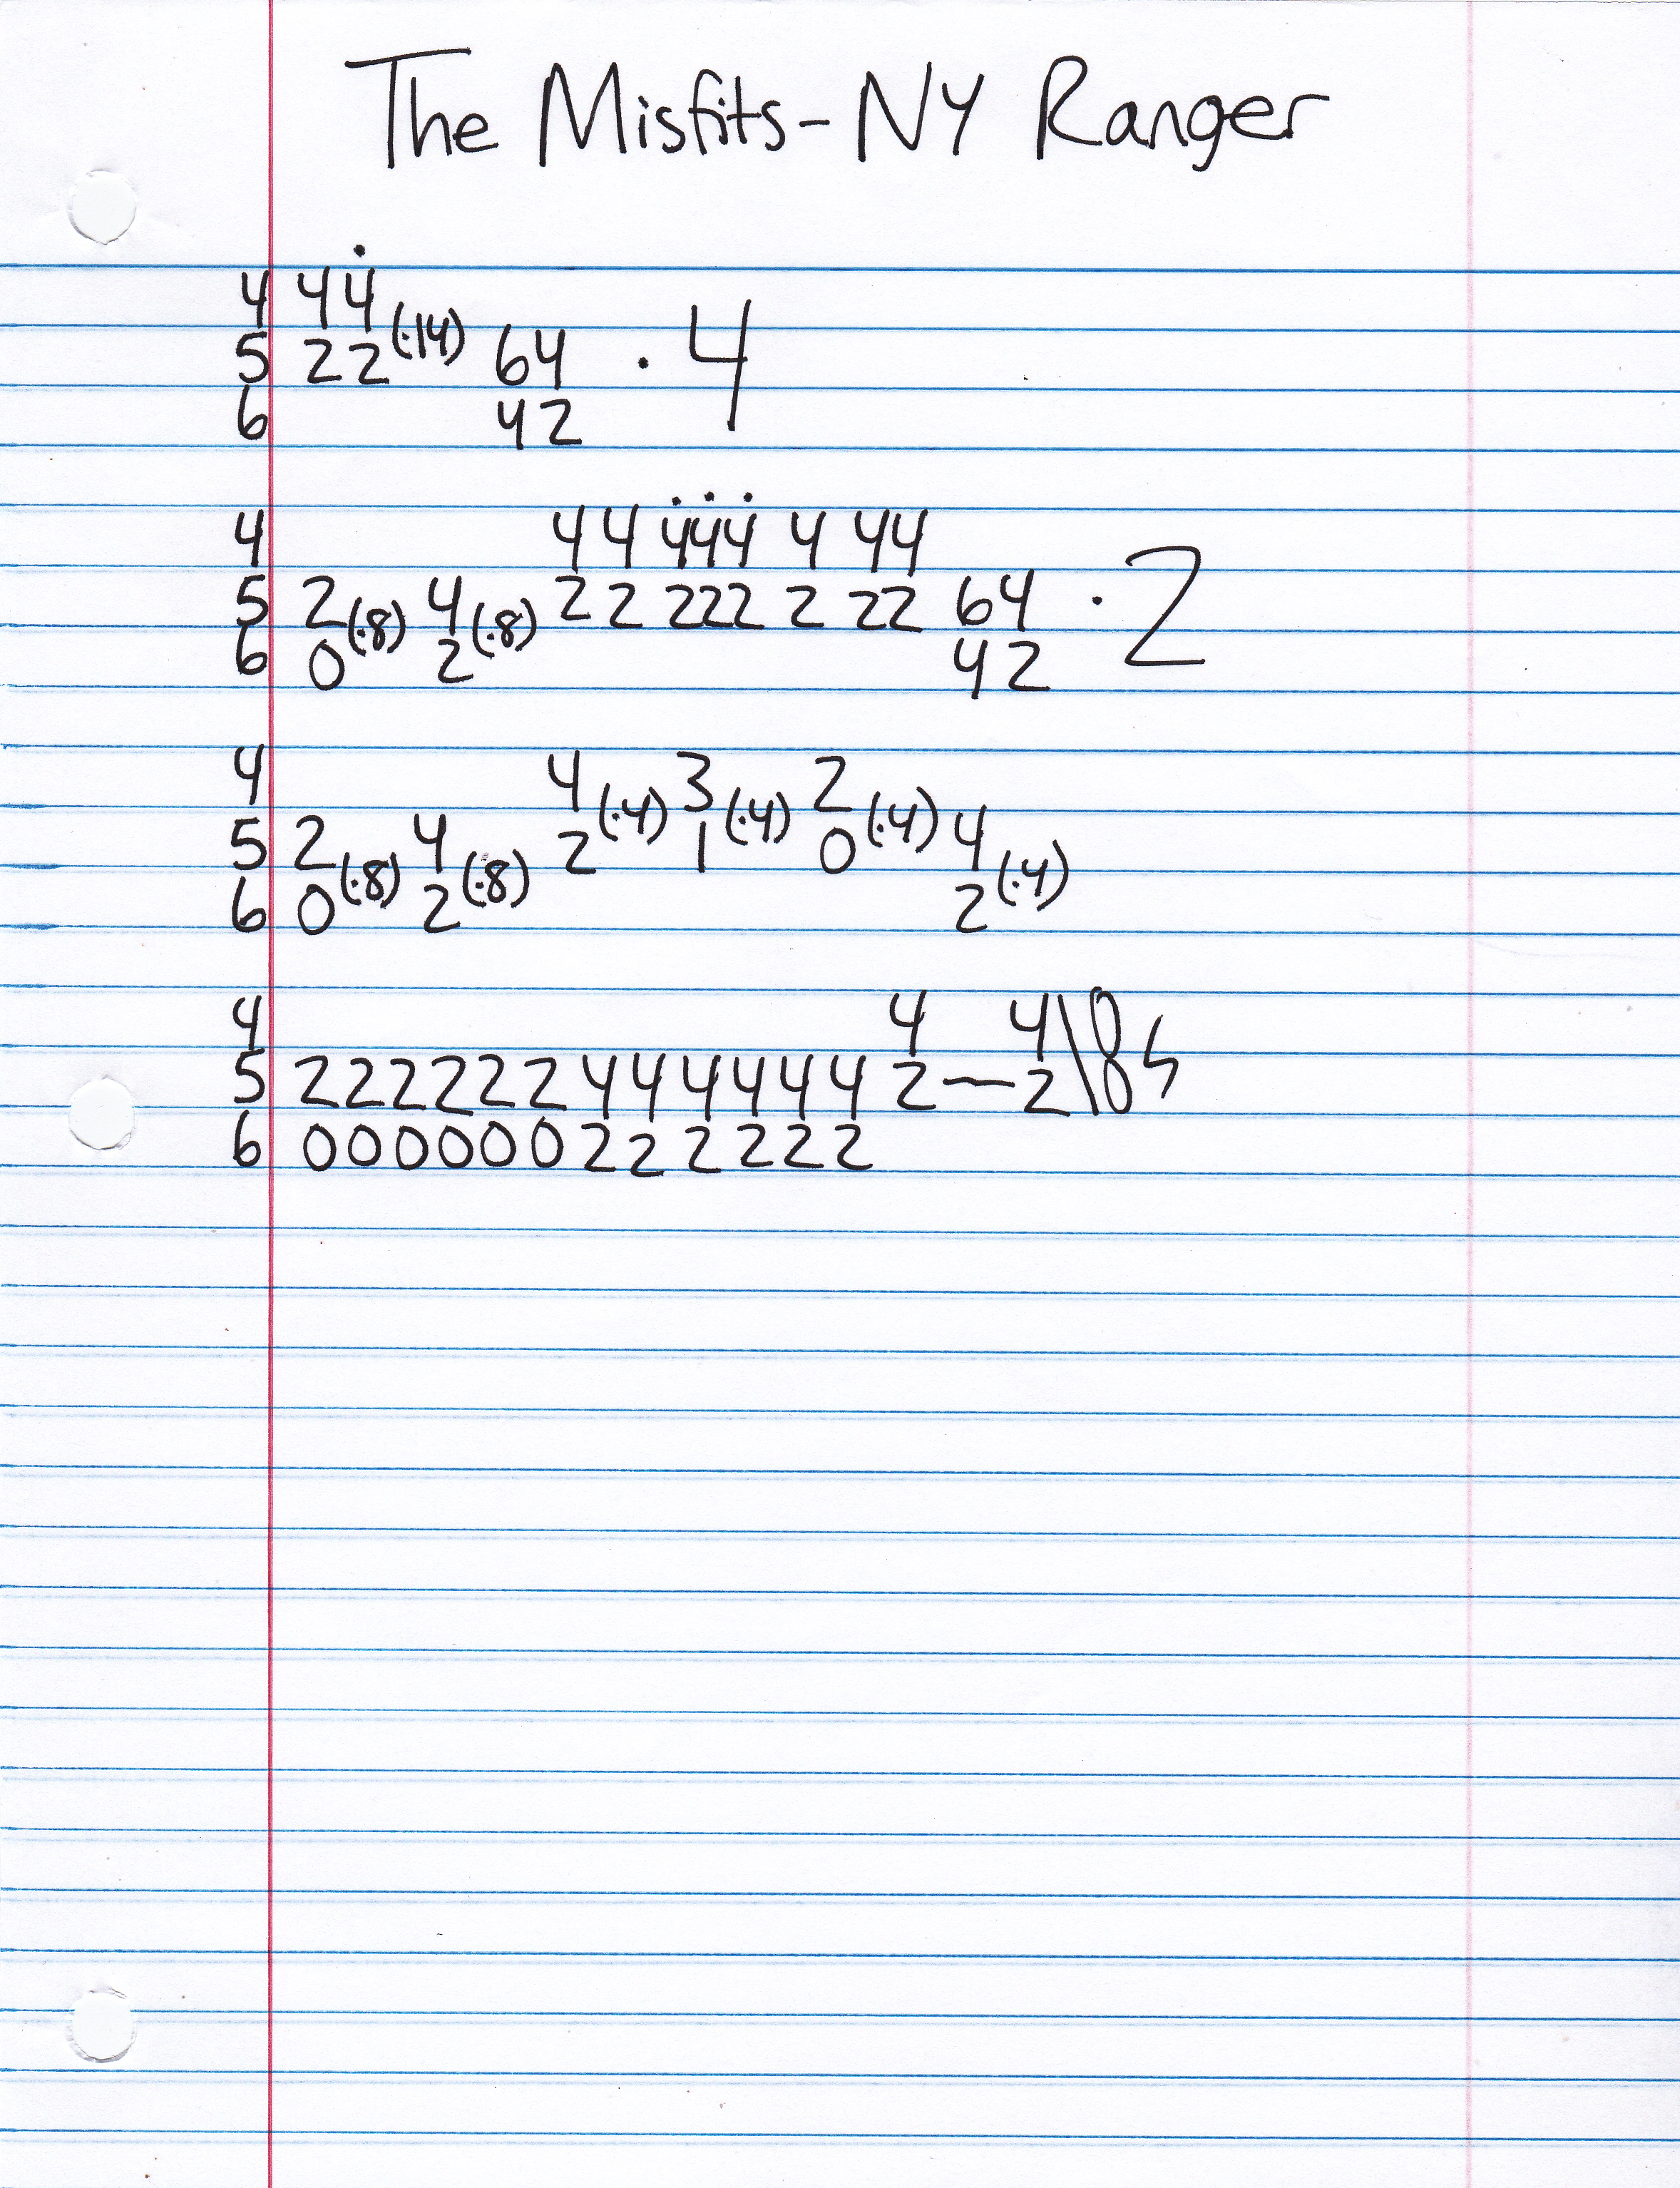 The Misfits - NY Ranger
4 44
5 22(·14) 64 · 4
6 42
4 44 444 4 44
5 2(·8) 4(·8) 2 2 222 2 22 64 · 2
6 0 2 42
4 4(·4) 3(·4) 2(·4)
5 2(·8) 4(·8) 2 1 0 4(·4)
6 0 2 2
4 4 4\0
5 222222444444 2—2\0
6 000000222222